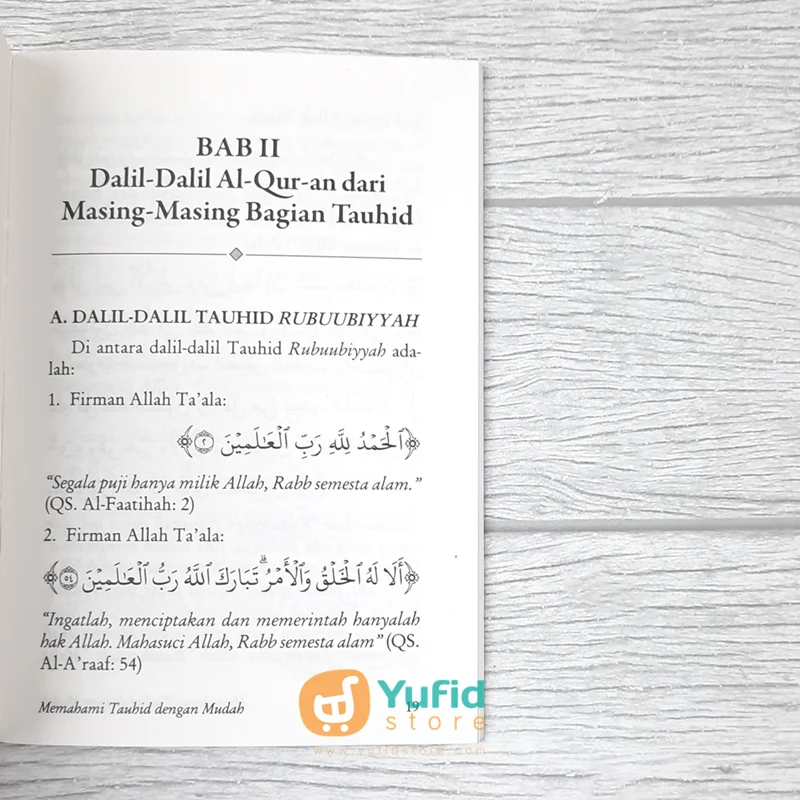 BAB II
Dalil-Dalil Al-Qur-an dari
Masing-Masing Bagian Tauhid
A. DALIL-DALIL TAUHID RUBUUBIYYAH
Di antara dalil-dalil Tauhid Rubuubiyyah ada-
lah:
1. Firman Allah Ta’ala:
﴿ٱلۡحَمۡدُ لِلَّهِ رَبِّ ٱلۡعَٰلَمِينَ ٢﴾
“Segala puji hanya milik Allah, Rabb semesta alam.”
(QS. Al-Faatihah: 2)
2. Firman Allah Ta’ala:
﴿أَلَا لَهُ ٱلۡخَلۡقُ وَٱلۡأَمۡرُۗ تَبَارَكَ ٱللَّهُ رَبُّ ٱلۡعَٰلَمِينَ ٥٤﴾
“Ingatlah, menciptakan dan memerintah hanyalah
hak Allah. Mahasuci Allah, Rabb semesta alam” (QS.
Al-A’raaf: 54)
Memahami Tauhid dengan Mudah 19
Yufid
store
www.yufidstore.com